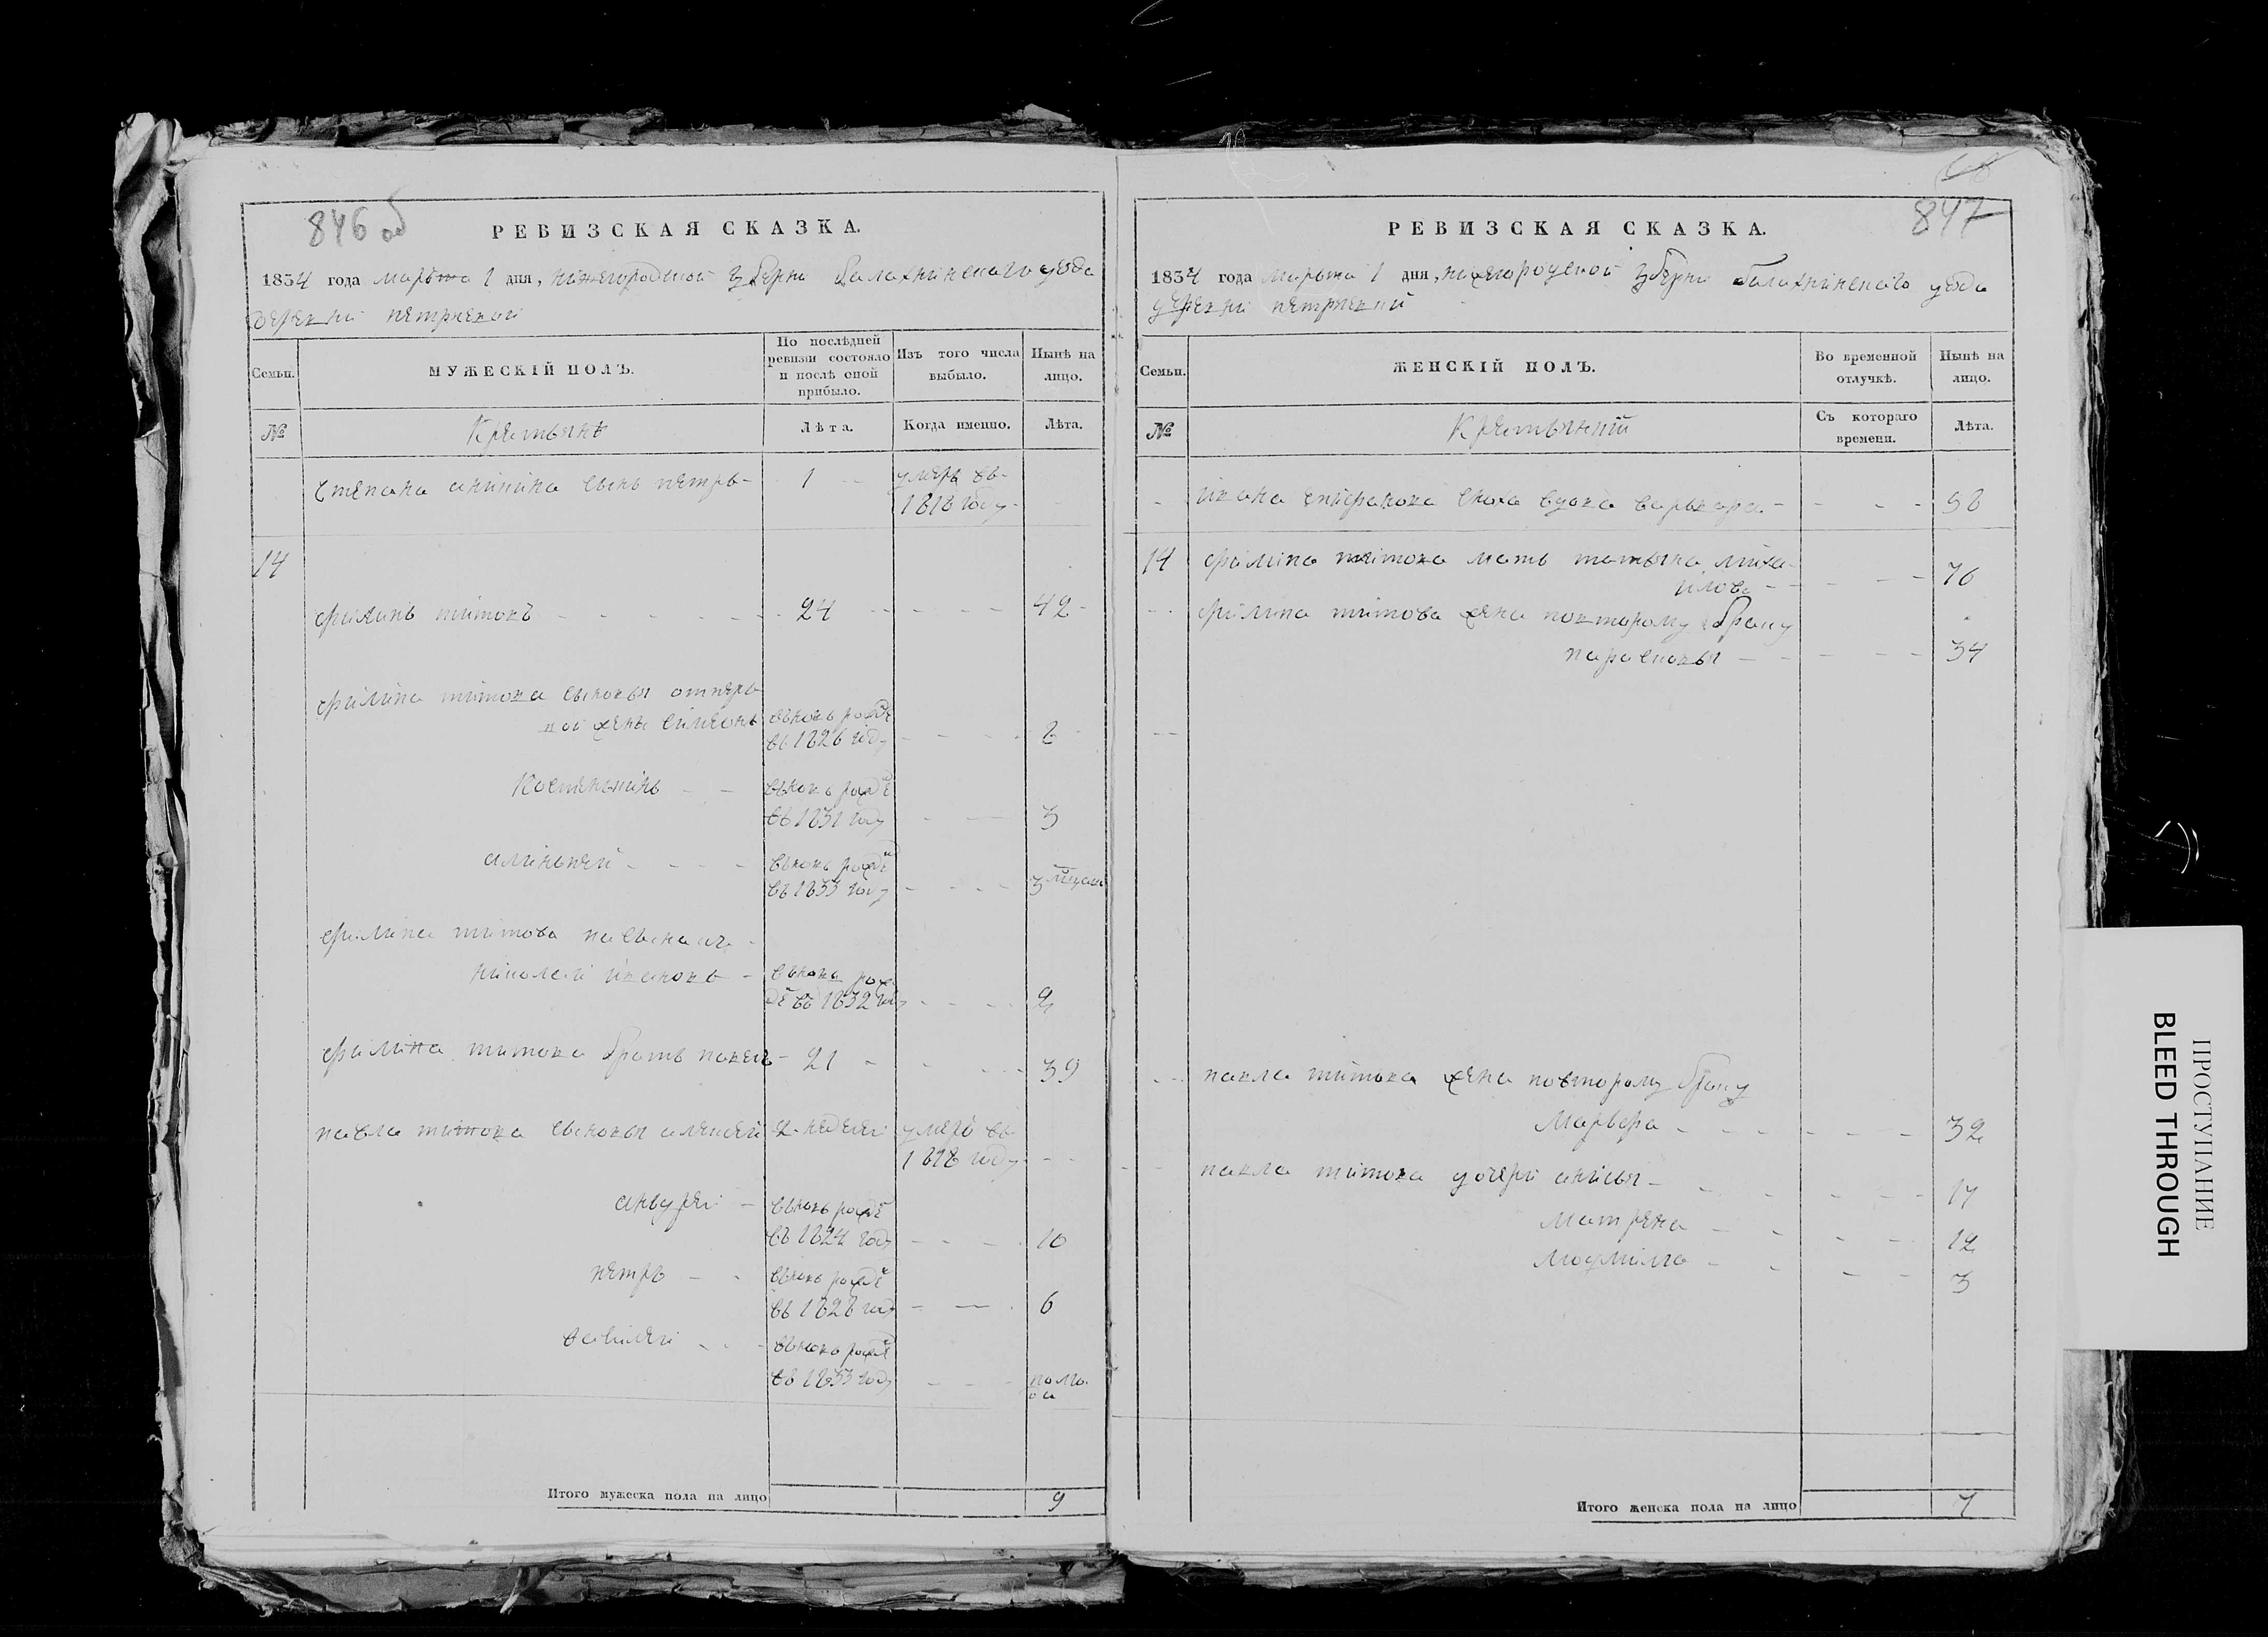 846 об
РЕВИЗСКАЯ СКАЗКА.
1834 года марьта 1 дня, нижегородской губерни балахнинскаго уезда
деревни петряевой
Семьи.
МУЖЕСКІЙ ПОЛЪ.
По послѣдней ревизіи состояло и послѣ оной прибыло.
Изъ того числа выбыло.
Нынѣ на лицо.
№
Крестьяне
Лѣта.
Когда именно.
Лѣта.
степана сынъ петръ 1 умеръ въ
1818 году
14
филипъ титовъ 24 42
филипа титова сыновья отперь
вой жены симеонъ вьновь рожде
въ 1826 году 8
Костеньтинъ вьновь рожде
въ 1831 году 3
вьновь рожде
въ 1833 году 3 месеца
филипа титова
николай ивановъ вьновь рож
де въ 1832 году 2
филипа титова братъ павелъ 21 39
павла титова сыновья алексей 2 недели умеръ въ
1818 году
андрей вьновь рожде
въ 1824 году 10
петръ вьновь рожде
въ 1828 году 6
василей вьновь рожде
въ 1833 году полго
да
Итого мужеска пола на лицо 9
847
РЕВИЗСКАЯ СКАЗКА.
1834 года марьта 1 дня, нижегородской губерни балахнинскаго уезда
деревни петряевой
Семьи.
ЖЕНСКІЙ ПОЛЪ.
Во временной отлучкѣ.
Нынѣ на лицо.
№
Крестьяния
Съ котораго времени.
Лѣта.
ивана сноха вдова варьвара 58
14 филипа титова мать татьяна михаи
илова 76
филипа титова жена повторому браку
парасковья 34
павла титова жена повторому браку
Марьфа 32
павла титова дочери анисья 17
матрена 12
людмила 3
Итого женска пола на лицо 7
ПРОСТУПАНИЕ
BLEED THROUGH